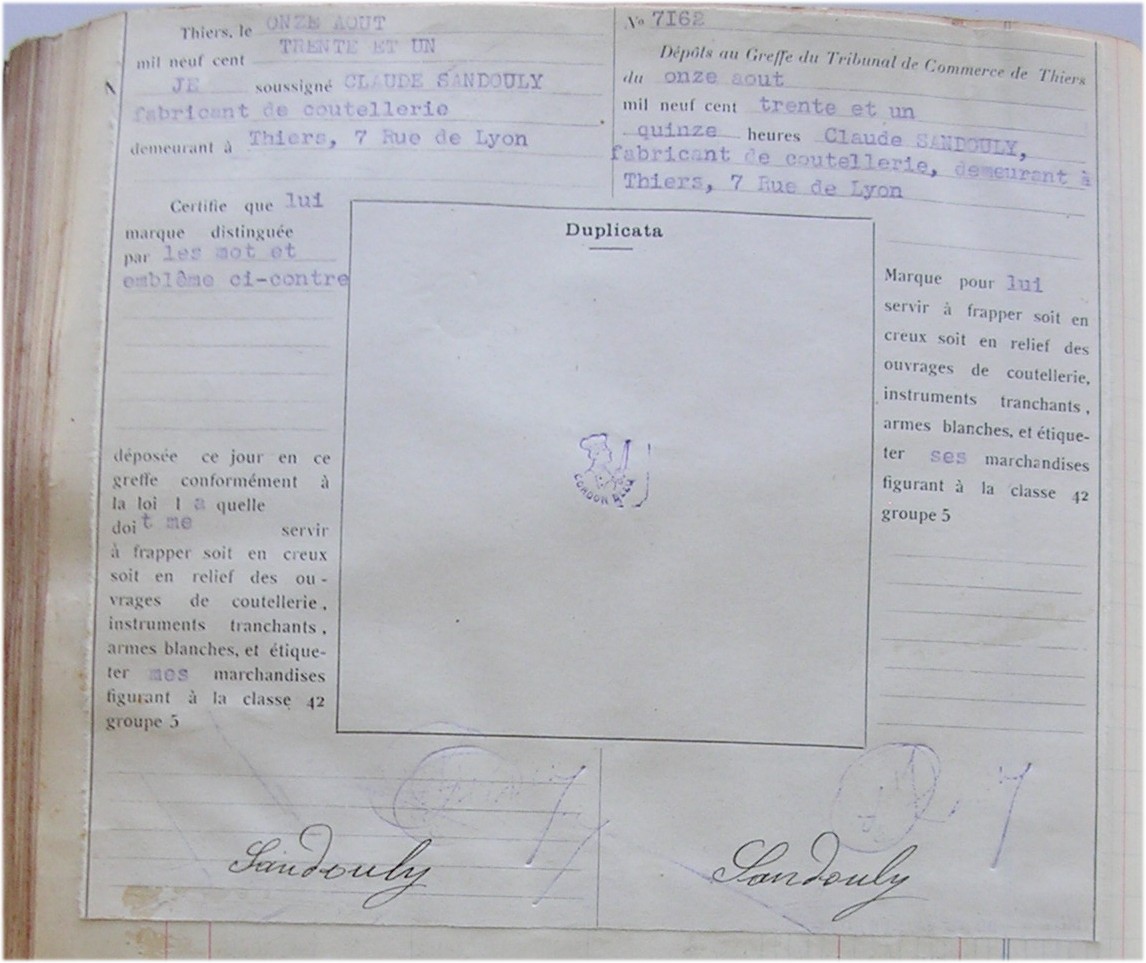 Thiers, le ONZE AOUT
mil neuf cent TRENTE ET UN
JE soussigné CLAUDE SANDOULY
fabricant de coutellerie
demeurant à Thiers, 7 Rue de Lyon
Certifie que lui
marque distinguée
par les mot et
emblême ci-contre
déposée ce jour en ce
greffe conformément à
la loi l a quelle
doit me servir
à frapper soit en creux
soit en relief des ou-
vrages de coutellerie,
instruments tranchants,
armes blanches, et étique-
ter mes marchandises
figurant à la classe 42
groupe 5
Sandouly
Duplicata
CORDON BLEU
No 7162
Dépôts au Greffe du Tribunal de Commerce de Thiers
du onze aout
mil neuf cent trente et un
quinze heures Claude SANDOULY,
fabricant de coutellerie, demeurant à
Thiers, 7 Rue de Lyon
Marque pour lui
servir à frapper soit en
creux soit en relief des
ouvrages de coutellerie,
instruments tranchants,
armes blanches, et étique-
ter ses marchandises
figurant à la classe 42
groupe 5
Sandouly